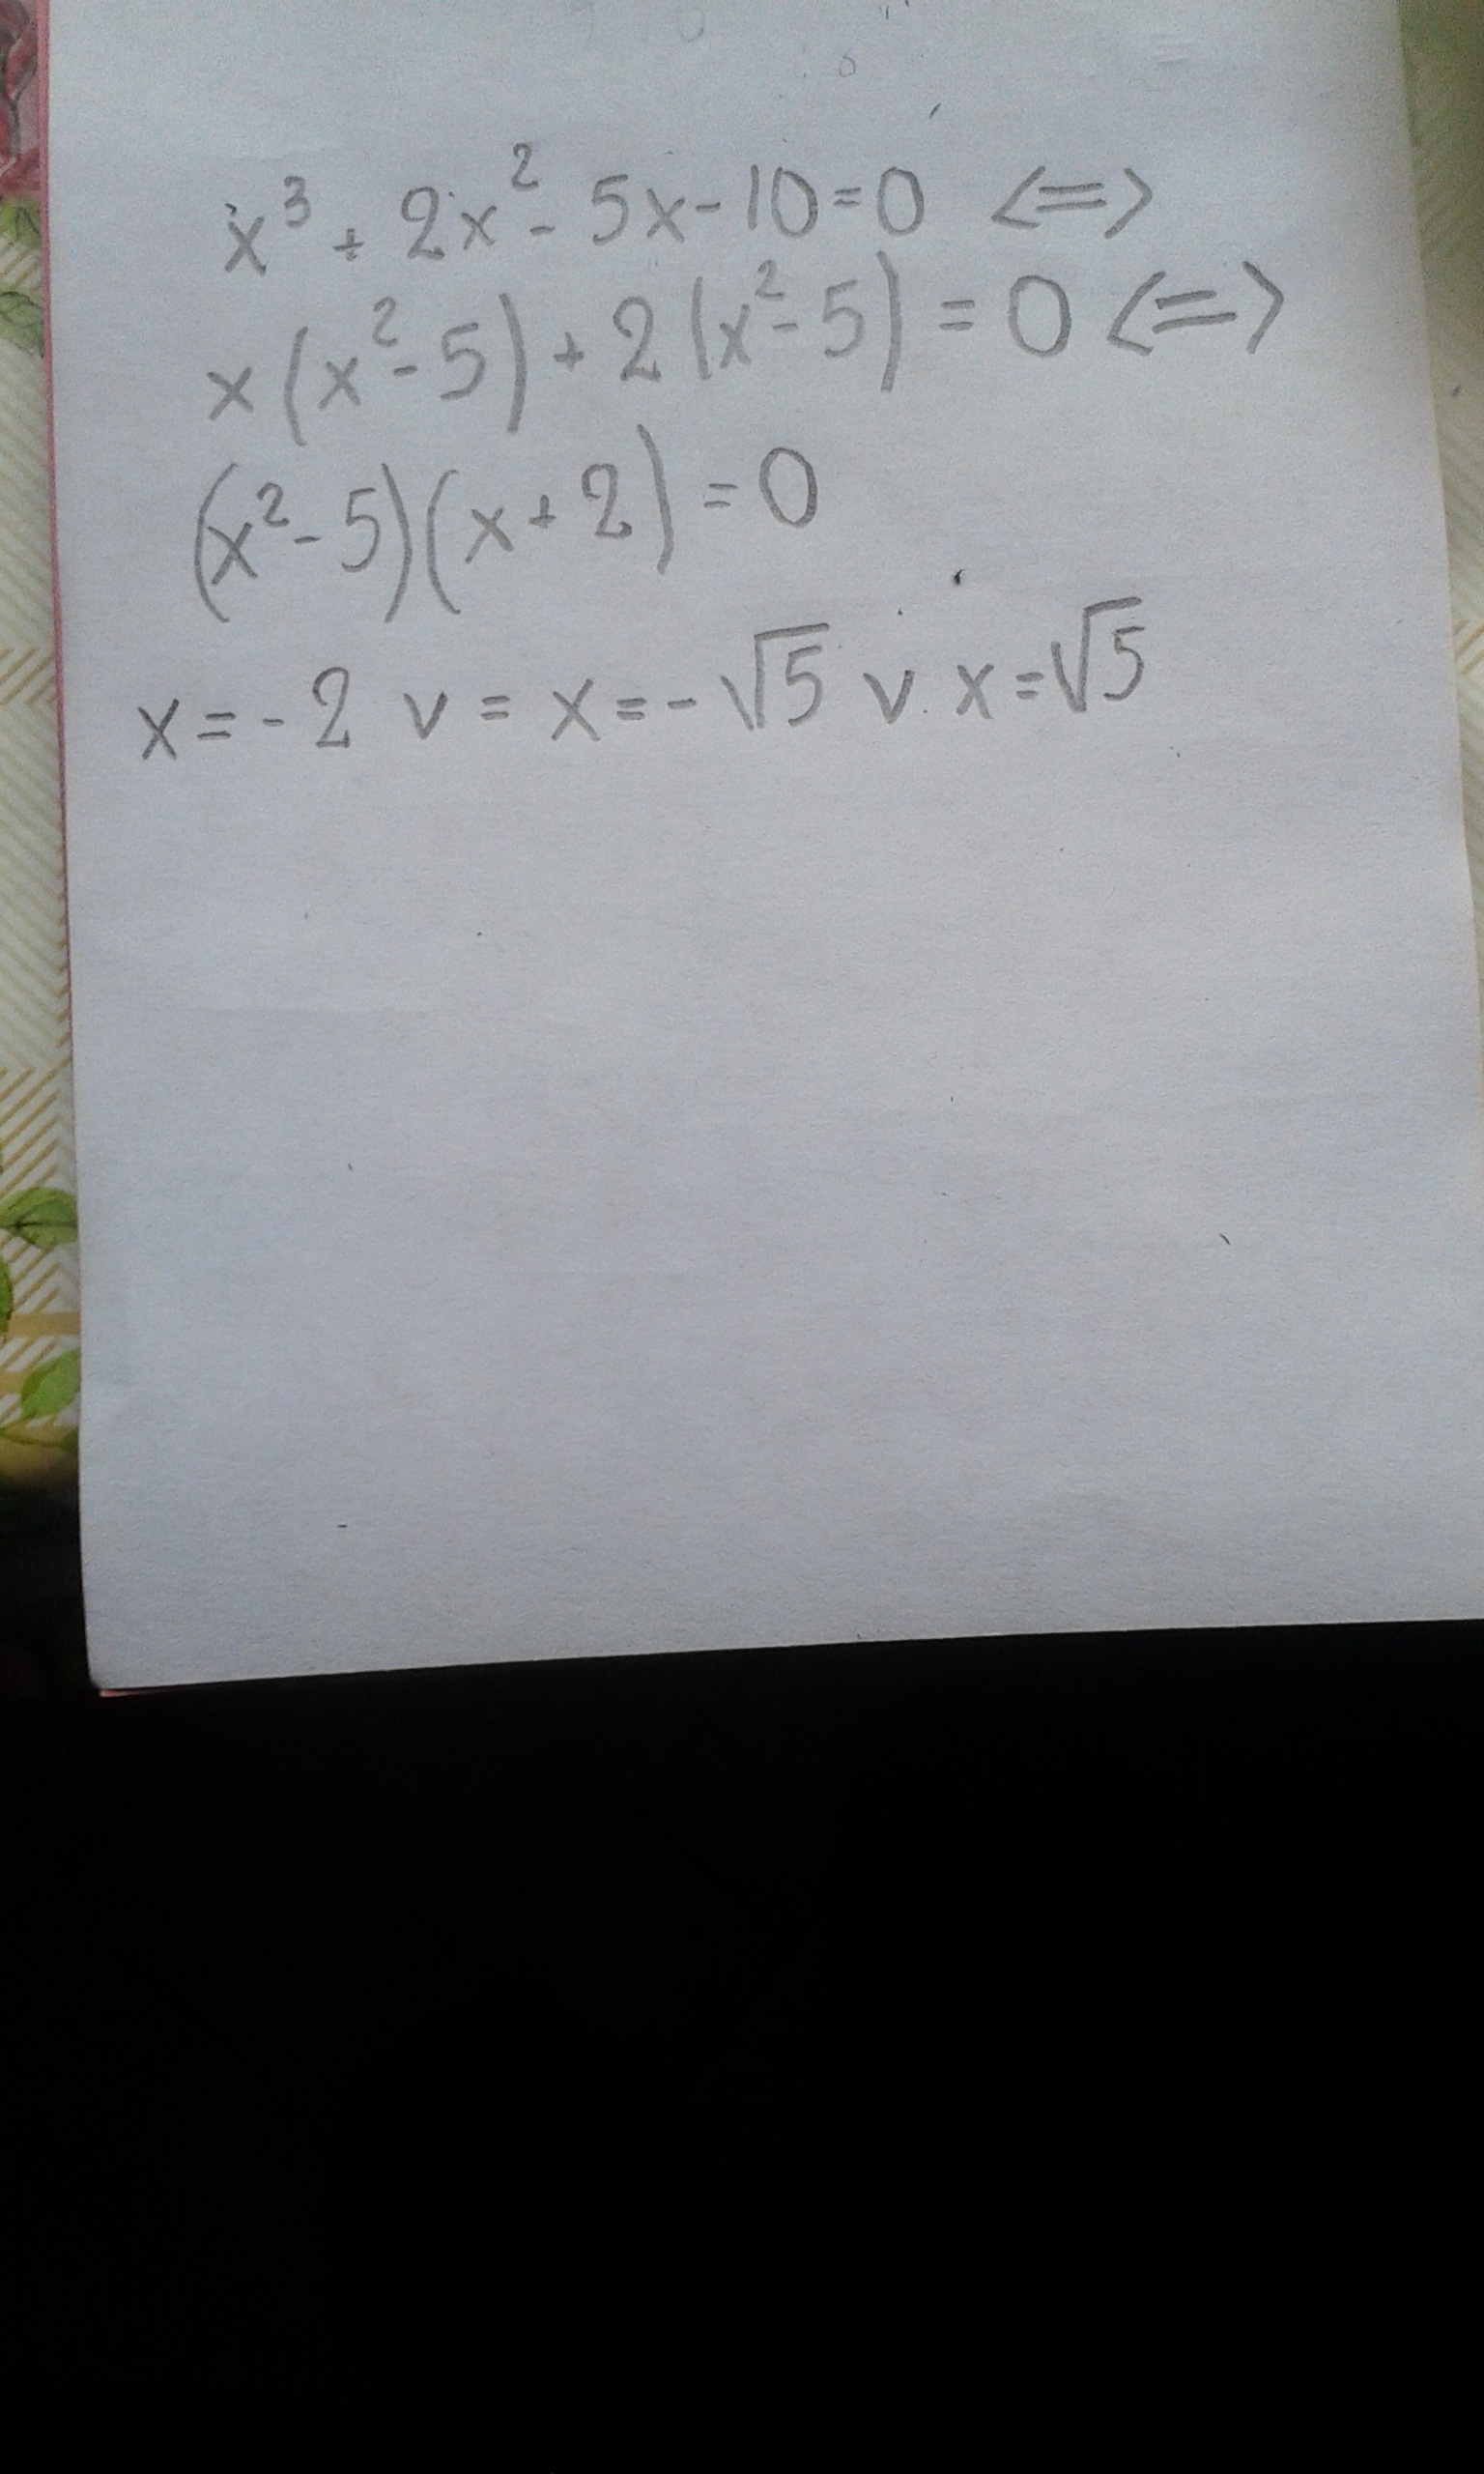 x³ + 2x² - 5x - 10 = 0 <=>
x(x² - 5) + 2(x² - 5) = 0 <=>
(x² - 5)(x + 2) = 0
x = -2 v = x = -√5 v x = √5